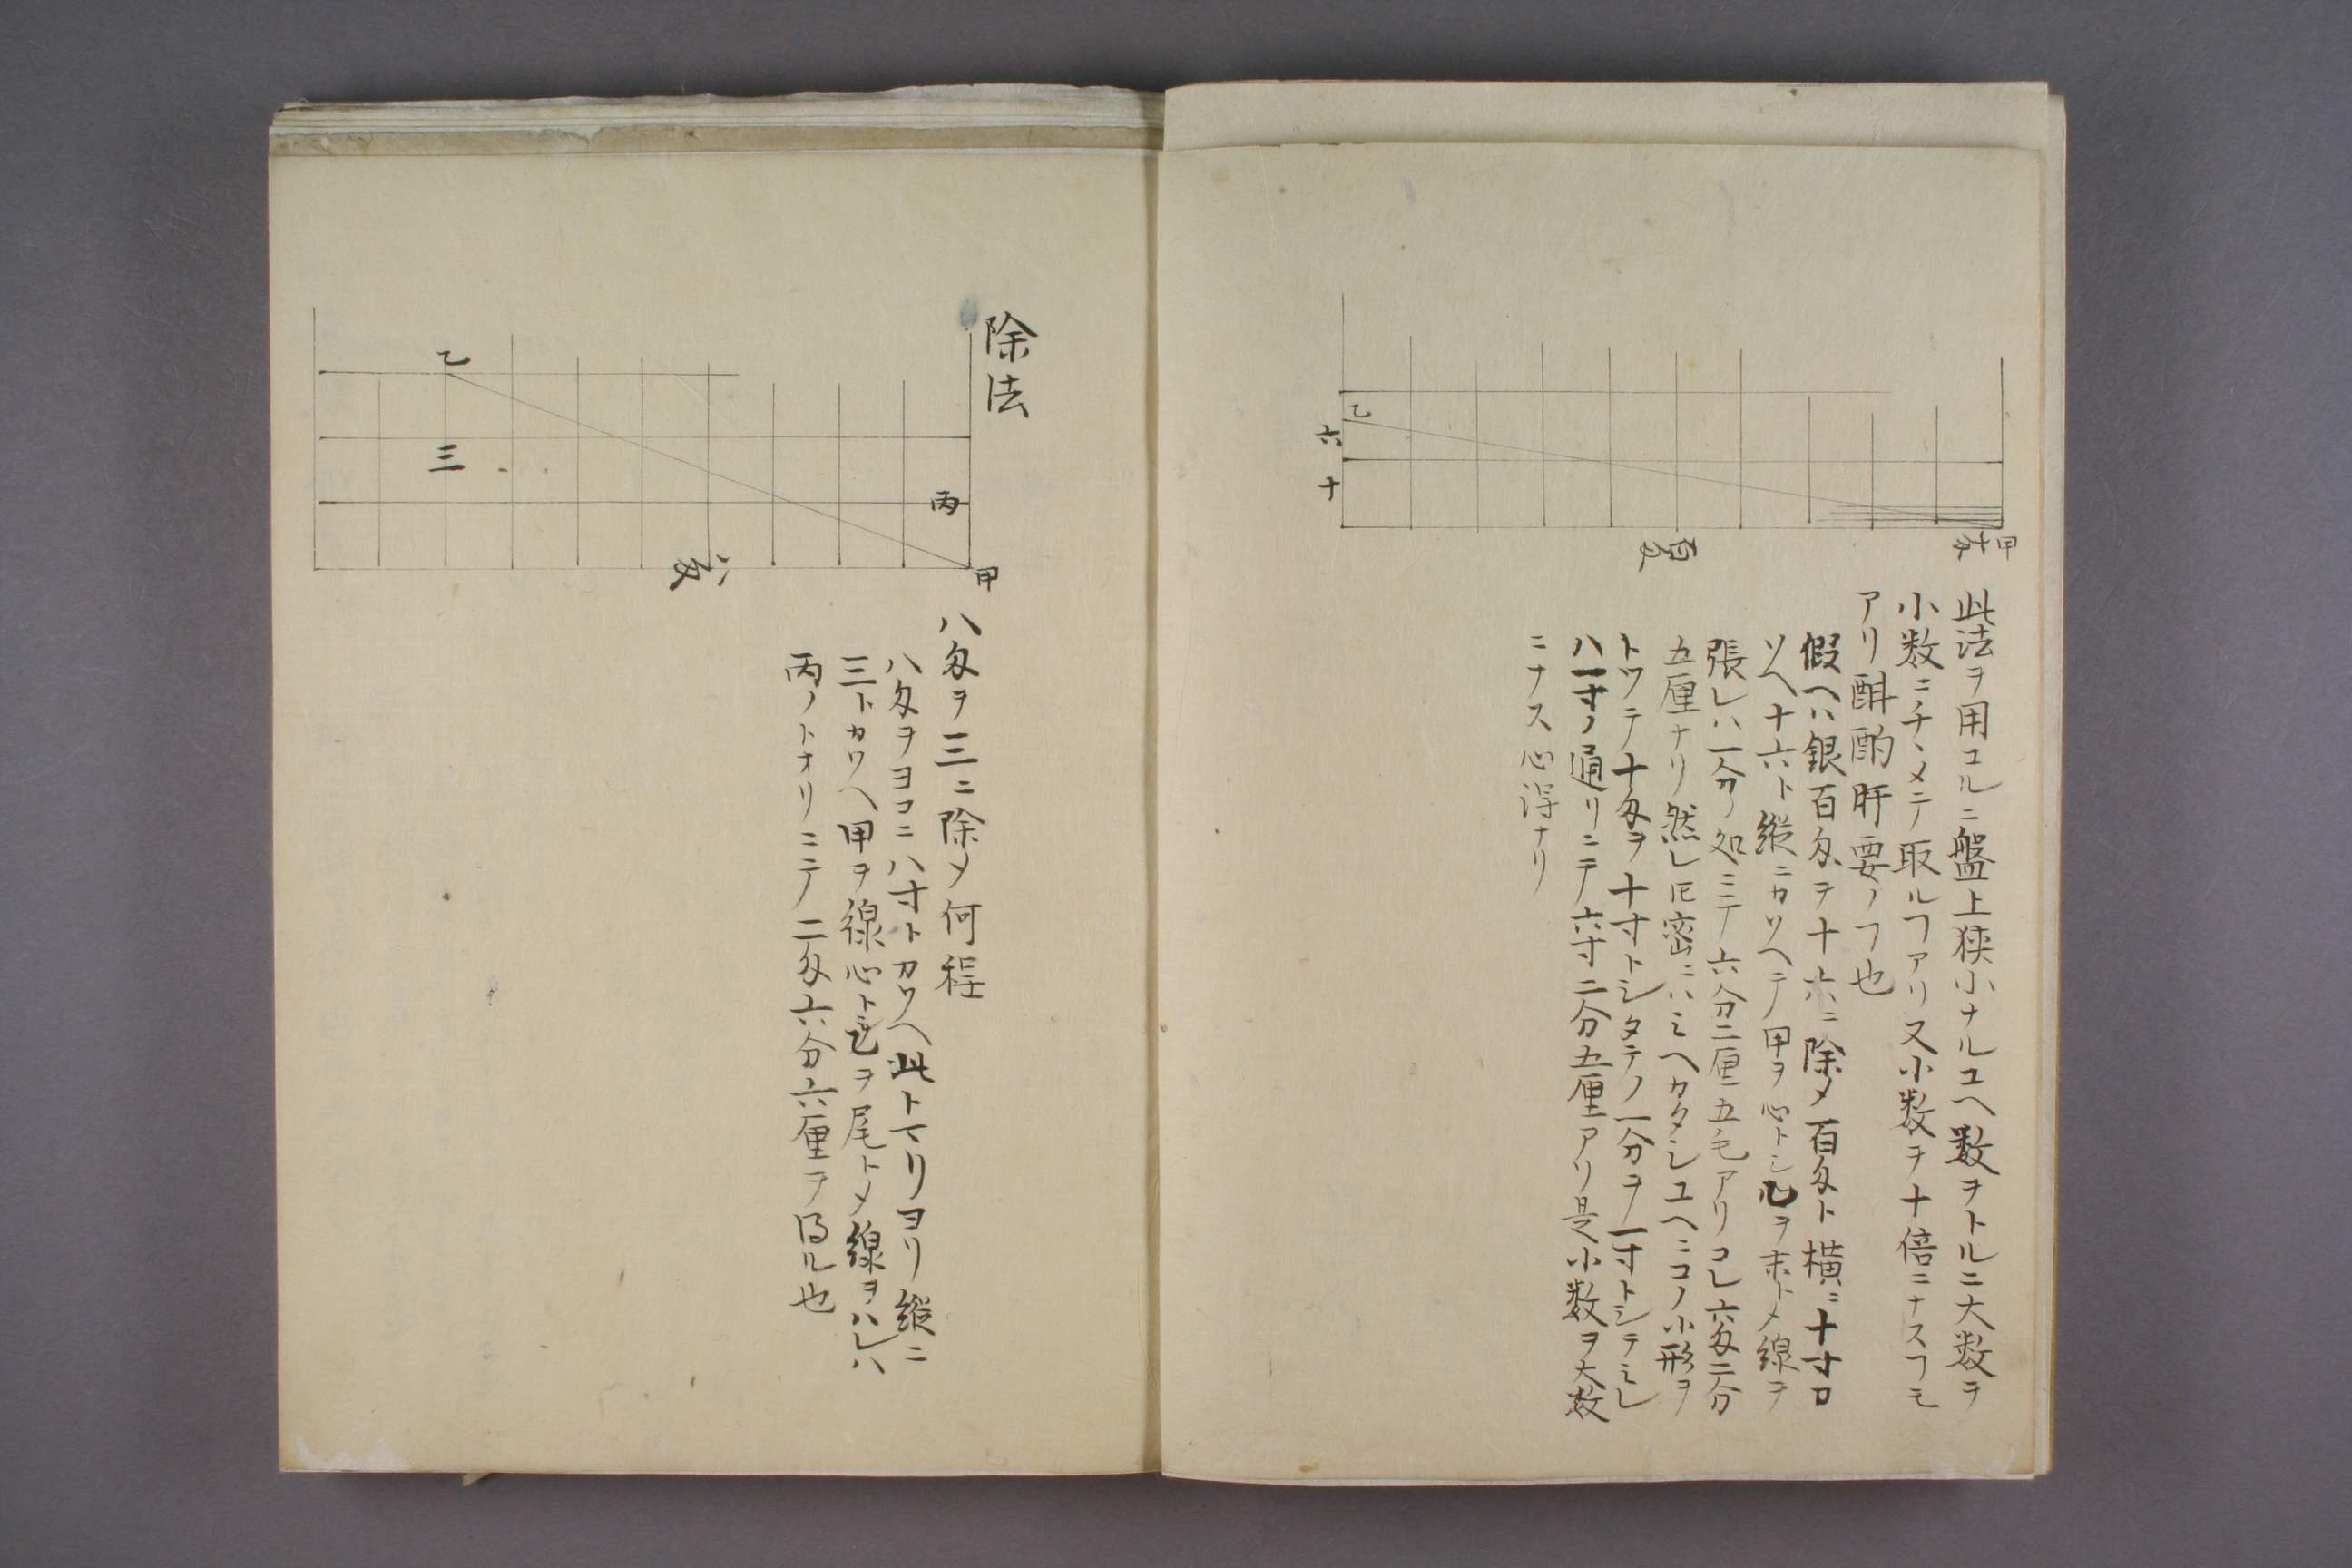 甲
十匁
百匁
乙
六
十
此法ヲ用ユルニ盤上狭小ナルユヘ数ヲトルニ大数ヲ
小数ニチヽメテ取ルヿアリ又小数ヲ十倍ニナスヿモ
アリ斟酌肝要ノヿ也
假ヘハ銀百匁ヲ十六ニ除メ百匁ト横ニ十寸カ
ソヘ十六ト縦ニカソヘテ甲ヲ心トシ乙ヲ末トメ線ヲ
張レハ一分ノ処ニテ六分二厘五毛アリコレ六匁二分
五厘ナリ然レ𪜈密ニハミヘカタシユヘニコノ小形ヲ
トツテ十匁ヲ十寸トシタテノ一分ヲ一寸トシテミレ
ハ一寸ノ通リニテ六寸二分五厘アリ是小数ヲ大数
ニナス心得ナリ
除法
乙
三
丙
甲
八匁
八匁ヲ三ニ除メ何程
八匁ヲヨコニ八寸トカソヘ此トマリヨリ縦ニ
三トカソヘ甲ヲ線心ト乙ヲ尾トメ線ヲハレハ
丙ノトオリニテ二匁六分六厘ヲ得ル也